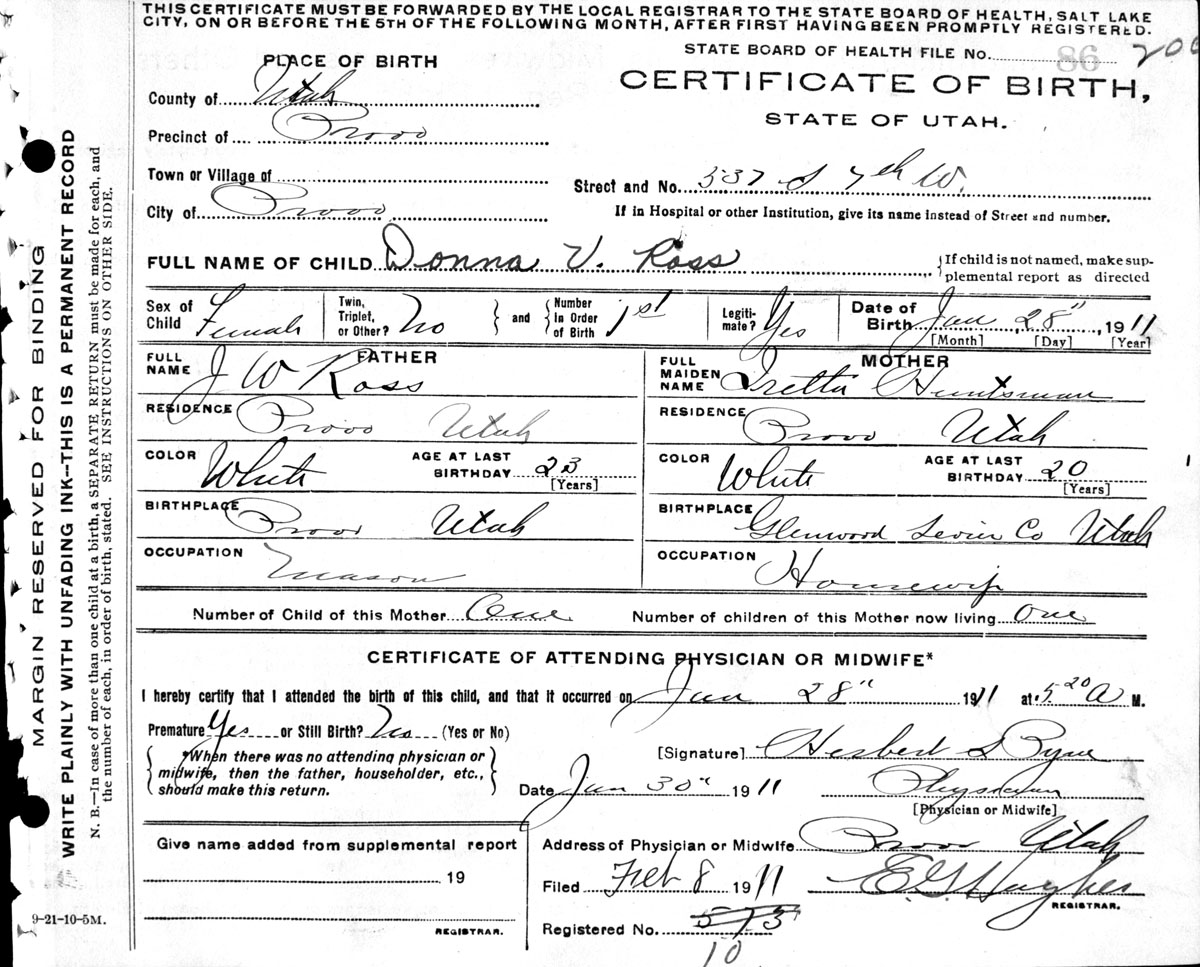 THIS CERTIFICATE MUST BE FORWARDED BY THE LOCAL REGISTRAR TO THE STATE BOARD OF HEALTH, SALT LAKE
CITY, ON OR BEFORE THE 5TH OF THE FOLLOWING MONTH, AFTER FIRST HAVING BEEN PROMPTLY REGISTERED.
STATE BOARD OF HEALTH FILE No. 86 200
PLACE OF BIRTH
CERTIFICATE OF BIRTH,
STATE OF UTAH.
County of Utah
Precinct of Provo
Town or Village of
Street and No. 537 S 7th W.
City of Provo
If in Hospital or other Institution, give its name instead of Street and number.
FULL NAME OF CHILD Donna V. Ross
{If child is not named, make sup-
plemental report as directed
Sex of Child Female
Twin, Triplet, or Other? No
and
Number In Order of Birth 1st
Legiti-mate? Yes
Date of Birth Jan 28", 1911
[Month] [Day] [Year]
FATHER
FULL NAME J W Ross
RESIDENCE Provo Utah
COLOR White
AGE AT LAST BIRTHDAY 23
[Years]
BIRTHPLACE Provo Utah
OCCUPATION Mason
MOTHER
FULL MAIDEN NAME Iretta Huntsman
RESIDENCE Provo Utah
COLOR White
AGE AT LAST BIRTHDAY 20
[Years]
BIRTHPLACE Glenwood Sevier Co Utah
OCCUPATION Housewife
Number of Child of this Mother One
Number of children of this Mother now living One
CERTIFICATE OF ATTENDING PHYSICIAN OR MIDWIFE*
I hereby certify that I attended the birth of this child, and that it occurred on Jan 28" 1911 at 5 20 A M.
Premature Yes or Still Birth? No (Yes or No)
*When there was no attending physician or
midwife, then the father, householder, etc.,
should make this return.
[Signature] Herbert S Pyne
Date Jan 30" 1911
Physician
[Physician or Midwife]
Give name added from supplemental report
19
REGISTRAR.
Address of Physician or Midwife Provo Utah
Filed Feb 8 1911
E G Hughes
REGISTRAR.
Registered No. 573
10
9-21-10-5M.
MARGIN RESERVED FOR BINDING
WRITE PLAINLY WITH UNFADING INK--THIS IS A PERMANENT RECORD
N. B.—In case of more than one child at a birth, a SEPARATE RETURN must be made for each, and
the number of each, in order of birth, stated. SEE INSTRUCTIONS ON OTHER SIDE.